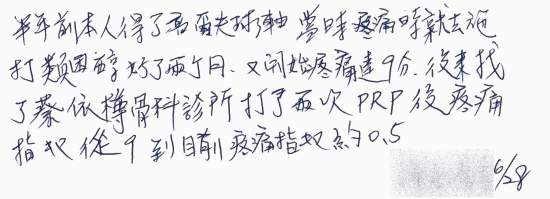 半年前本人得了高爾夫球軸 當時疼痛時就去施
打類固醇好了兩个月、又開始疼痛達9分、後来找
了蔡依樺骨科診所打了兩次PRP後疼痛
指数從9到目前疼痛指数約0.5
6/28